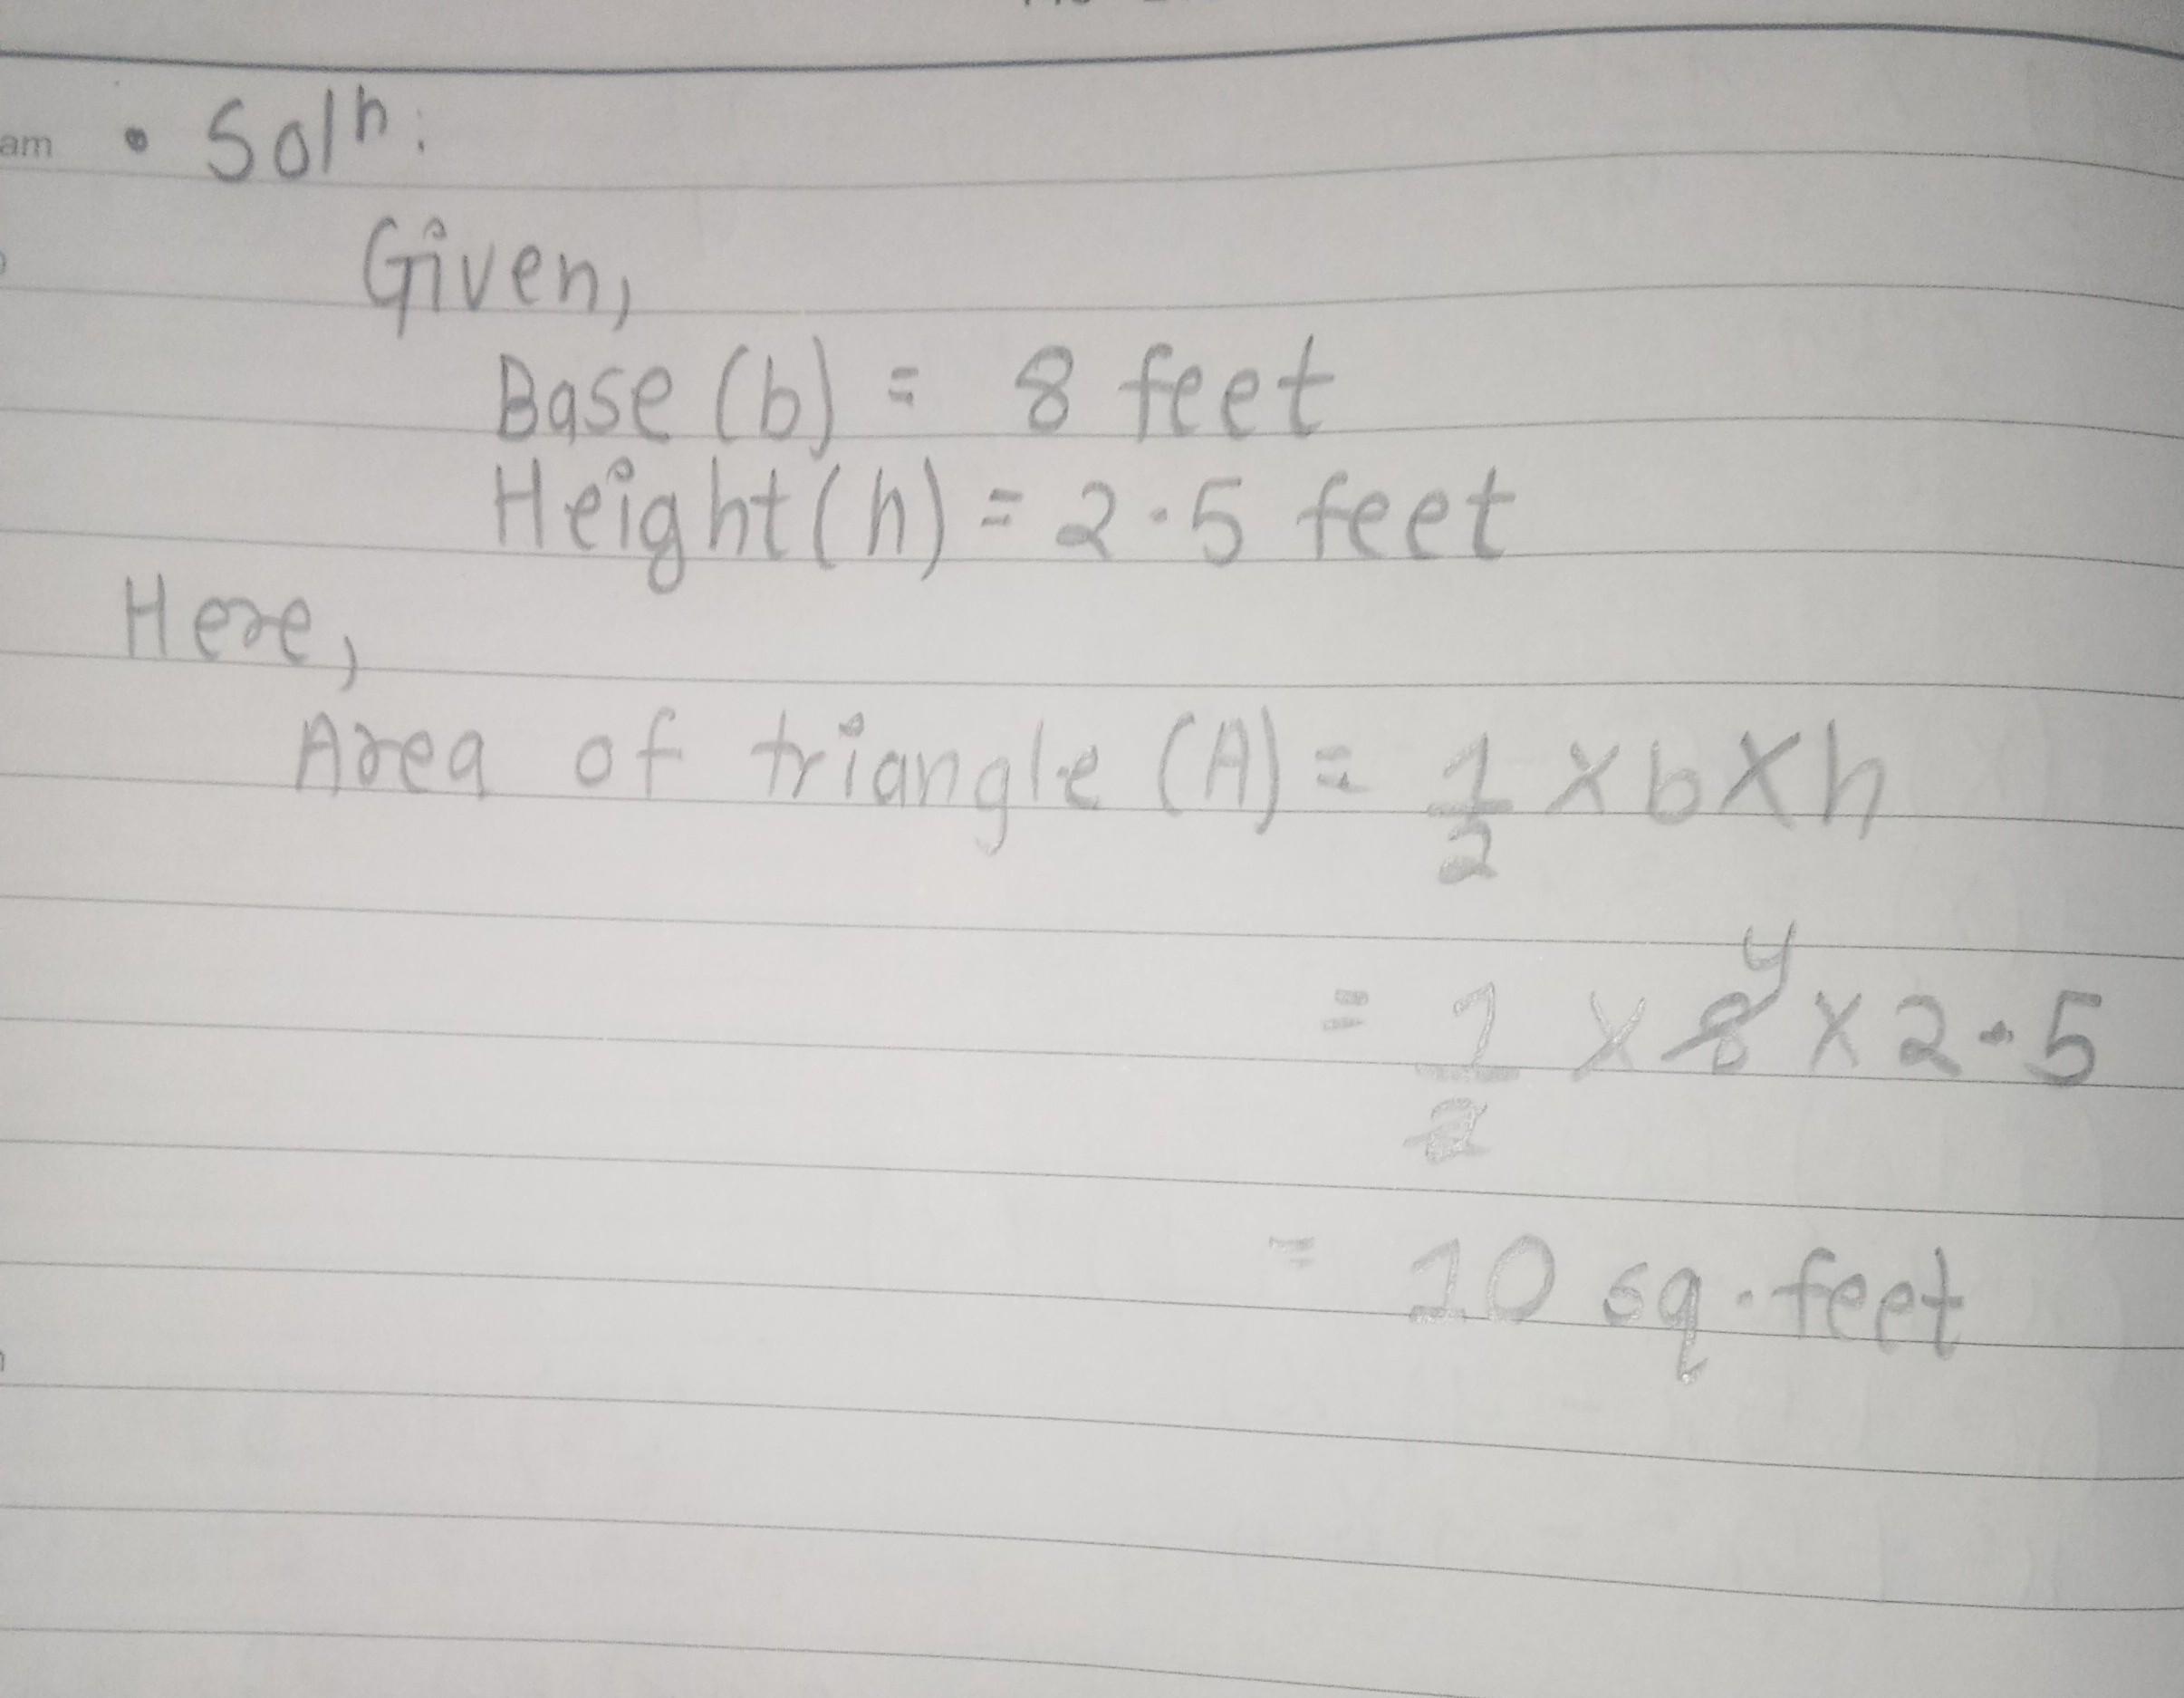 am • Solⁿ:
Given,
Base (b) = 8 feet
Height (h) = 2.5 feet
Here,
Area of triangle (A) = 1/2 × b × h
= 1/2 × 8 4 × 2.5
= 10 sq. feet